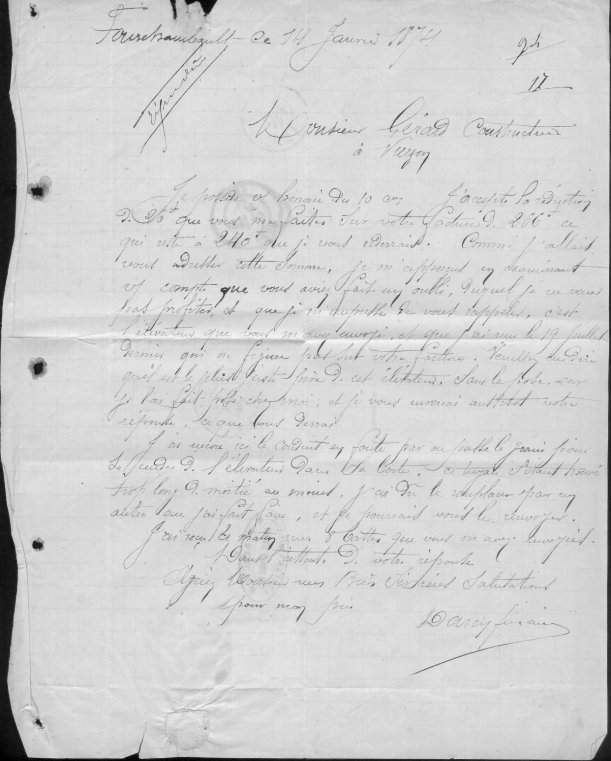 Fourchambault ce 14 Janvier 1874
répondu
17
Monsieur Gérard Constructeur
à Vierzon
Je possède v/ honorée du 10 ct. J'accepte la réduction
de 26f que vous me faites sur votre facture de 266f ce
qui reste à 240f que je vous devrais. Comme j'allais
vous adresser cette somme, je m'apperçus en examinant
v/ compte que vous aviez fait un oubli, duquel je ne veux
pas profiter, et que je m'empresse de vous rappeler, c'est
l'élévateur que vous m'avez envoyé, et que j'ai reçu le 19 Juillet
dernier qui ne figure pas sur votre facture. Veuillez me dire
quel est le plus juste prix de cet élévateur, sans la pose, car
je l'ai fait poser chez moi, et je vous enverrai aussitôt votre
réponse, ce que vous devrai.
J'ai encore ici le conduit en fonte par où passe le grain pour
se rendre de l'élévateur dans la boîte, ce tuyau s'étant trouvé
trop long de moitié au moins, j'ai dû le remplacer par un
autre que j'ai fait faire, et je pourrais vous le renvoyer.
J'ai reçu ce matin mes 8 cartes que vous m'avez envoyées.
Dans l'attente de votre réponse
Agréez Monsieur mes Très Sincères Salutations
pour mon père
Darcy